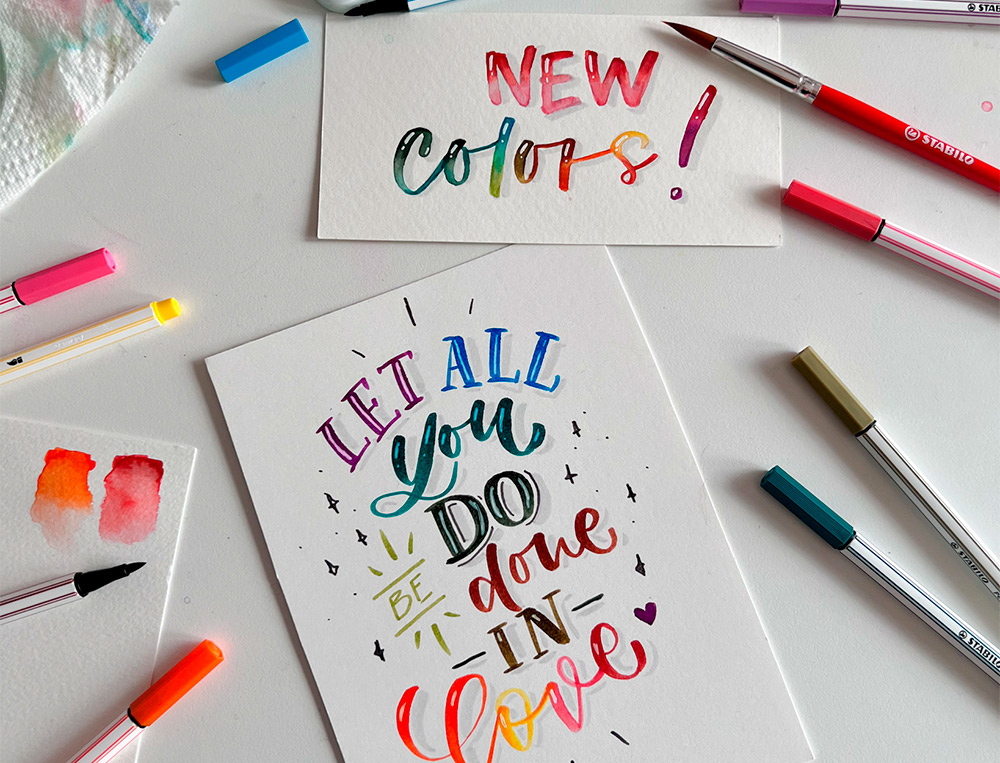 NEW
Colors!
STABILO
STABILO
STABILO
STABILO
LET ALL
you
DO
BE
done
IN
love